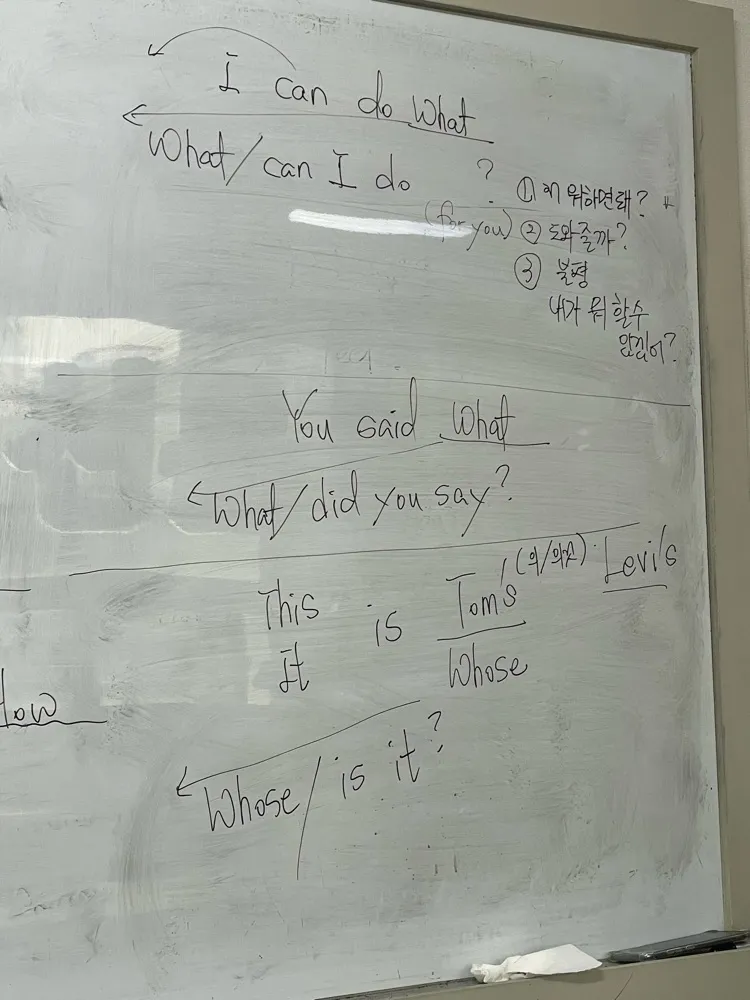 I can do What
What/can I do ?
(for you)
① 뭐하면돼?
② 도와줄까?
③ 불평
내가 뭐 할수
있겠어?
You said What
What/did you say?
This
It
is Tom's (의/의것) Levi's
Whose
How
Whose/is it?